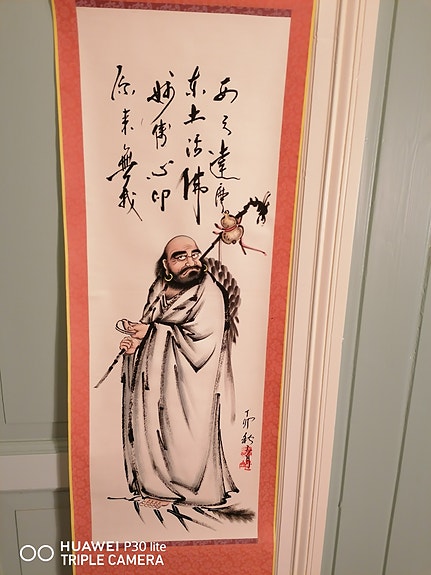 西天達摩
東土法佛
妙傳心印
原來無我
丁卯秋
HUAWEI P30 lite
TRIPLE CAMERA